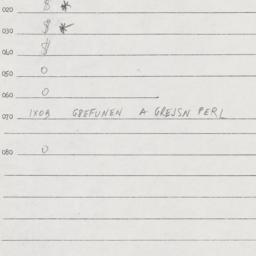 020 $ *
030 $ *
040 $
050 0
060 0
070 IXOG GBEFUNEN A GREJSN PERL
080 0